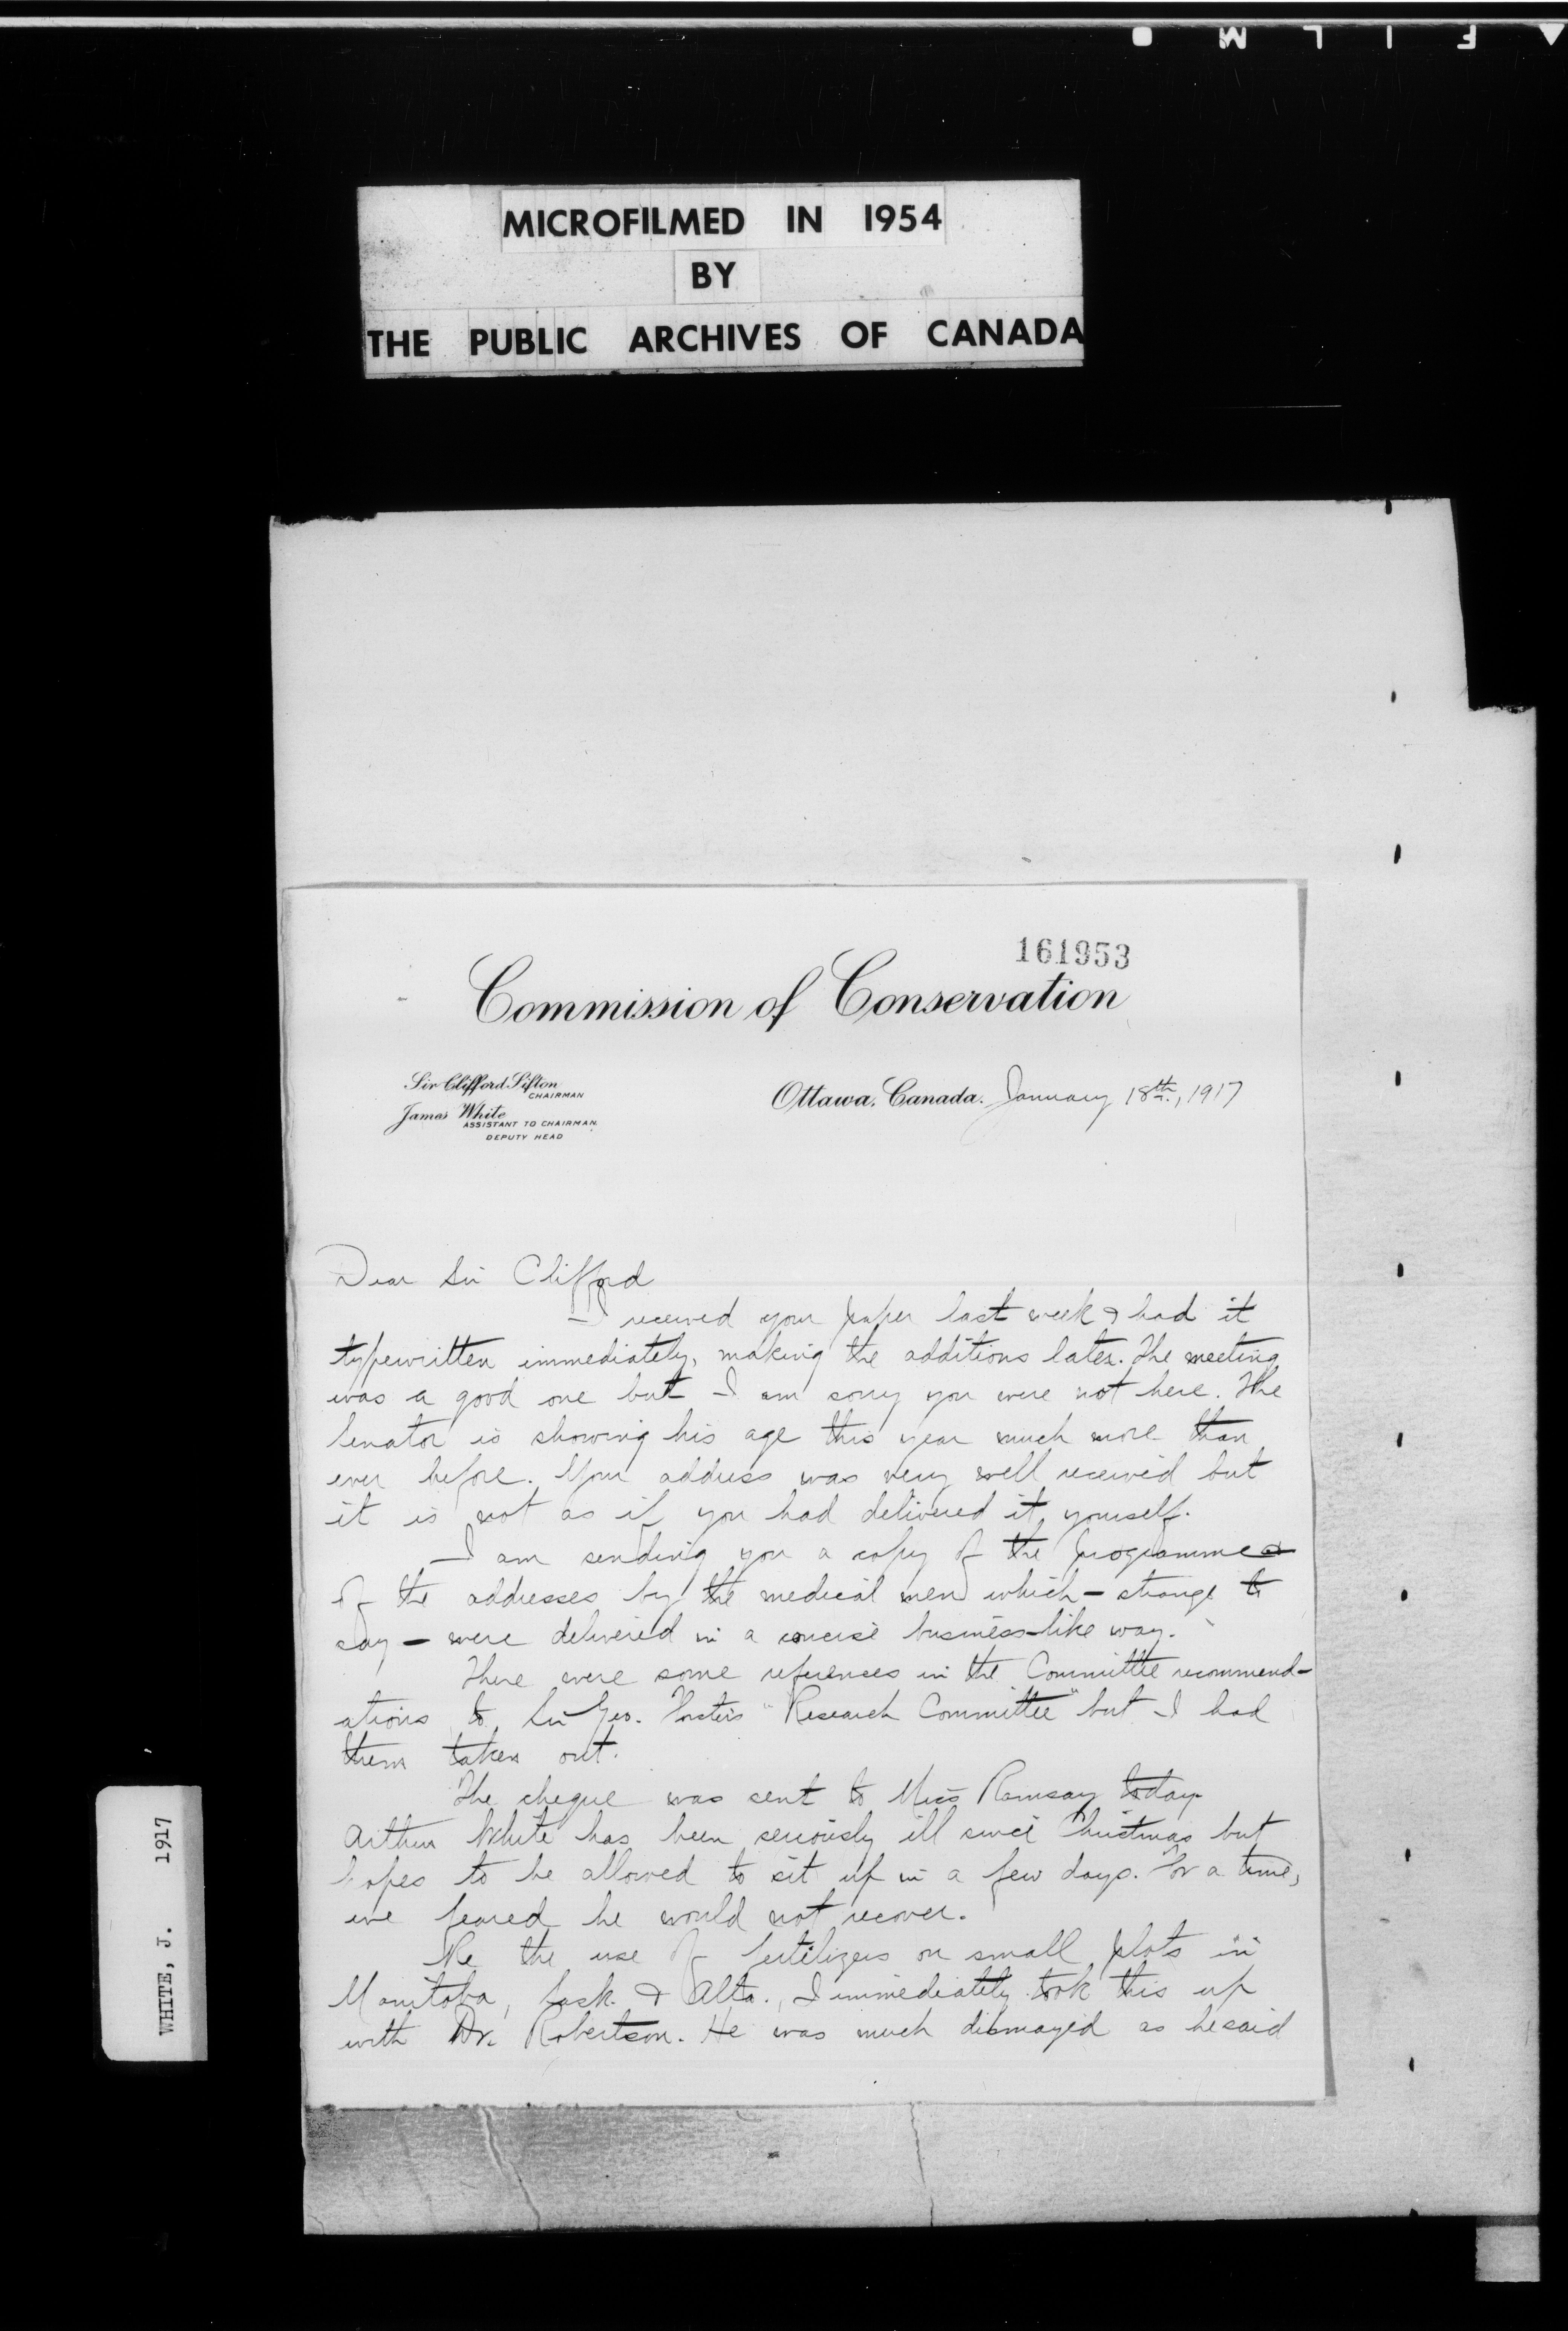 FILM
MICROFILMED IN 1954
BY
THE PUBLIC ARCHIVES OF CANADA
161953
Commission of Conservation
Sir Clifford Sifton
CHAIRMAN
James White
ASSISTANT TO CHAIRMAN
DEPUTY HEAD
Ottawa, Canada. January 18th., 1917
Dear Sir Clifford
I received your paper last week & had it
typewritten immediately, making the additions later. The meeting
was a good one but I am sorry you were not here. The
Senator is showing his age this year much more than
ever before. Your address was very well received but
it is not as if you had delivered it yourself.
I am sending you a copy of the programme
of the addresses by the medical men which - strange to
say - were delivered in a concise business-like way.
There were some references in the Committee recommend-
ations to Sir Geo. Foster's "Research Committee" but I had
them taken out.
The cheque was sent to Miss Ramsay today.
Arthur White has been seriously ill since Christmas but
hopes to be allowed to sit up in a few days. For a time,
we feared he would not recover.
Re the use of fertilizers on small plots in
Manitoba, Sask. & Alta., I immediately took this up
with Dr. Robertson. He was much dismayed as he said
WHITE, J. 1917